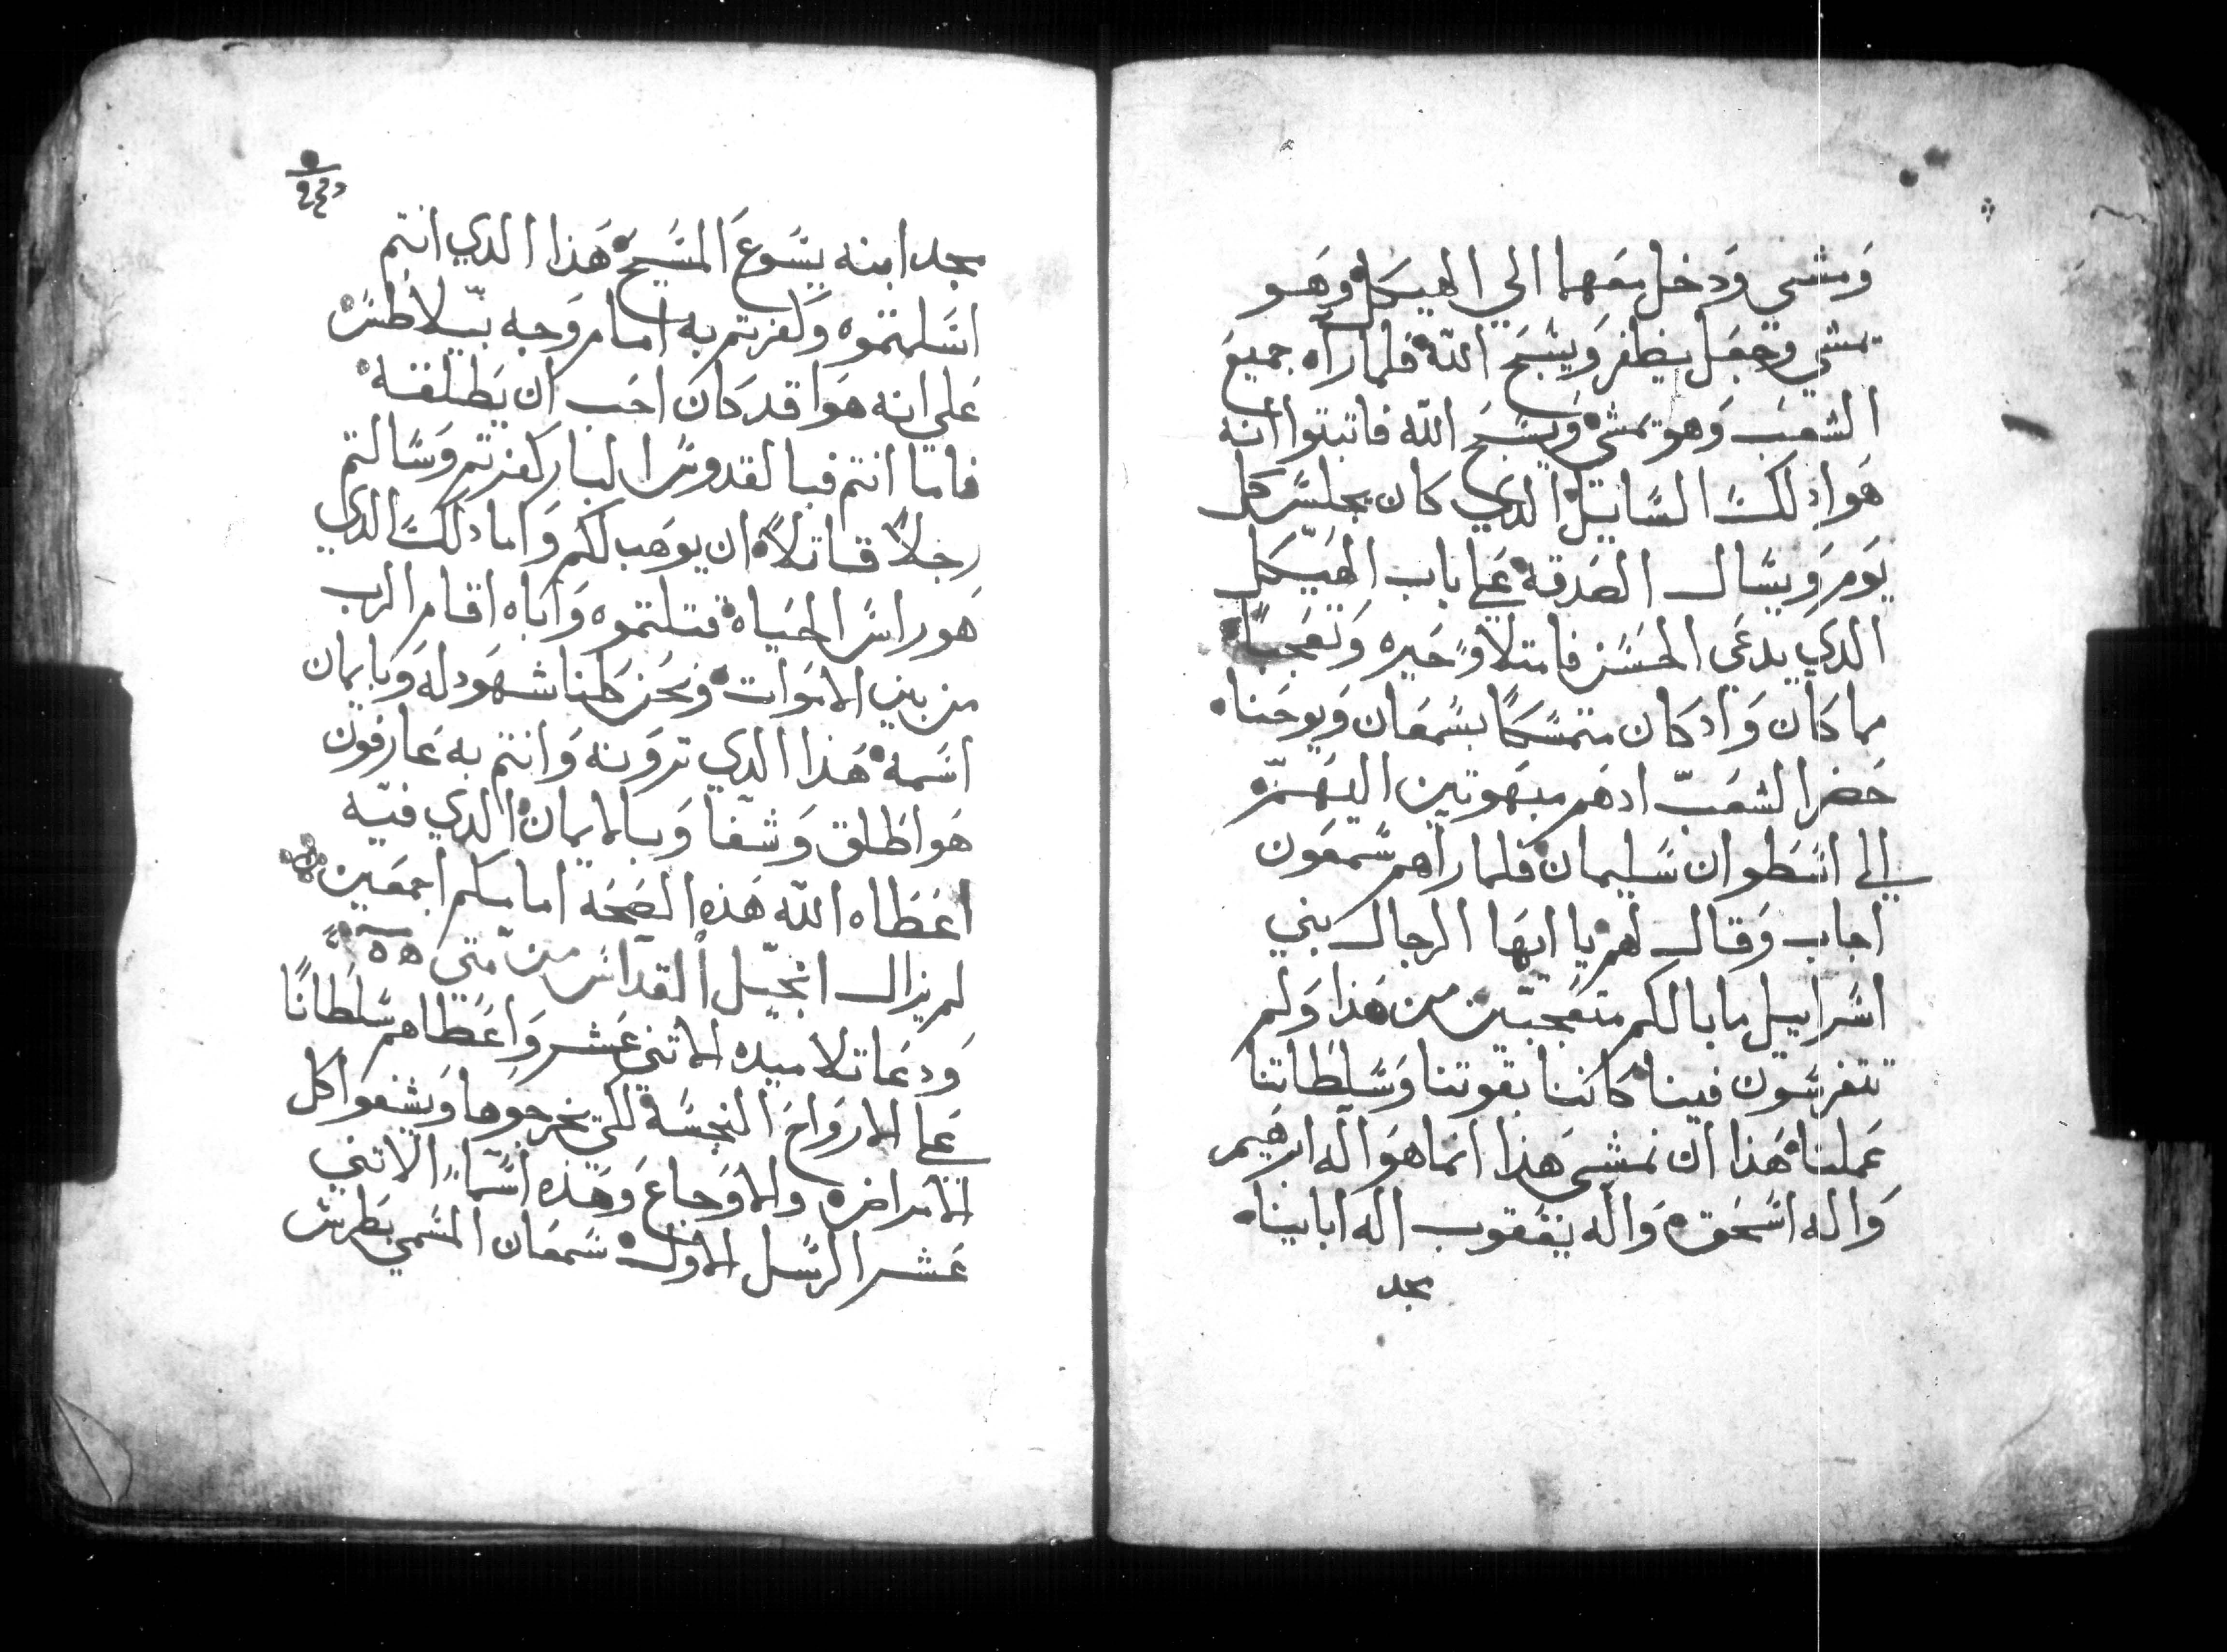 ومشي ودخل معهما الي الهيكل وهو
يمشي وجعل يظفر ويسبح الله فلما رآه جميع
الشعب وهو يمشي ويسبح الله فاتبتوا انه
هوا دلك السايل الدي كان يجلس كل
يوم ويسال الصدقه علي باب الهيكل
الدي يدعي الحسن فامتلاو حيره وتعجبا
مما كان واد كان متمسكا بسمعان ويوحنا
حضر الشعب ادهم مبهوتين اليهم
الي اسطوان سليمان فلما رآهم سمعون
اجاب وقال لهم يا ايها الرجال بني
اسراييل ما بالكم متعجبين من هذا ولم
تتفرسون فينا كاننا بقوتنا وسلطاننا
عملنا هذا ان نمشي هذا انما هوا اله ابرهيم
واله اسحق واله يعقوب اله ابايينا
مجد
مجد ابنه يسوع المسيح هذا الدي انتم
اسلمتموه وكفرتم به امام وجه بيلاطس
علي انه هوا قد كان احب ان يطلقه
فاما انتم فبالقدوس البار كفرتم وسالتم
رجلاً قاتلاً ان يوهب لكم واما دلك الدي
هو راس الحياه قتلتموه واياه اقام الرب
من بين الاموات ونحن كلنا شهود له وبايمان
اسمه هذا الدي ترونه وانتم به عارفون
هوا طلق وشفا وبالايمان الدي فيه
اعطاه الله هذه الصحه امامكم اجمعين
لم يزال انجيل القداس من متي
ودعا تلاميده الاتني عشر واعطاهم سلطانًا
علي الارواح النجسه لكي يخرجوها ويشفوا كل
الامراض والاوجاع وهذه اسما الاتني
عشر الرسل الاول سمعان المسمي بطرس